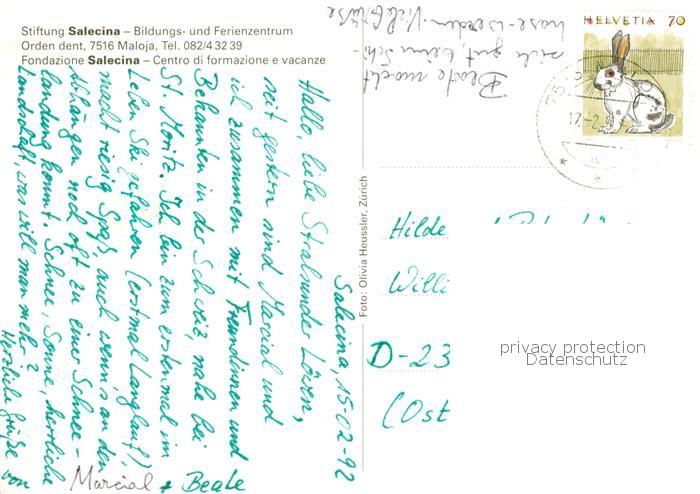 Stiftung Salecina – Bildungs- und Ferienzentrum
Orden dent, 7516 Maloja, Tel. 082/4 32 39
Fondazione Salecina – Centro di formazione e vacanze
Salecina, 15-02-92
Hallo, liebe Stralsunder Löwen,
seit gestern sind Marcial und
ich zusammen mit Freundinnen und
Bekannten in der Schweiz, nahe bei
St. Moritz. Ich bin zum erstenmal im
Leben Ski gefahren (erstmal Langlauf),
macht riesig Spaß, auch wenn's an den
Abhängen noch oft zu einer Schnee-
landung kommt. Schnee, Sonne, herrliche
Landschaft, was will man mehr?
Herzliche Grüße von
Marcial + Beate
Beate macht
sich gut, beim Ski-
hase-werden. Viele Grüße
Foto: Olivia Heussler, Zürich
HELVETIA 70
Hilde
Willi
D-23
(Ost
privacy protection
Datenschutz